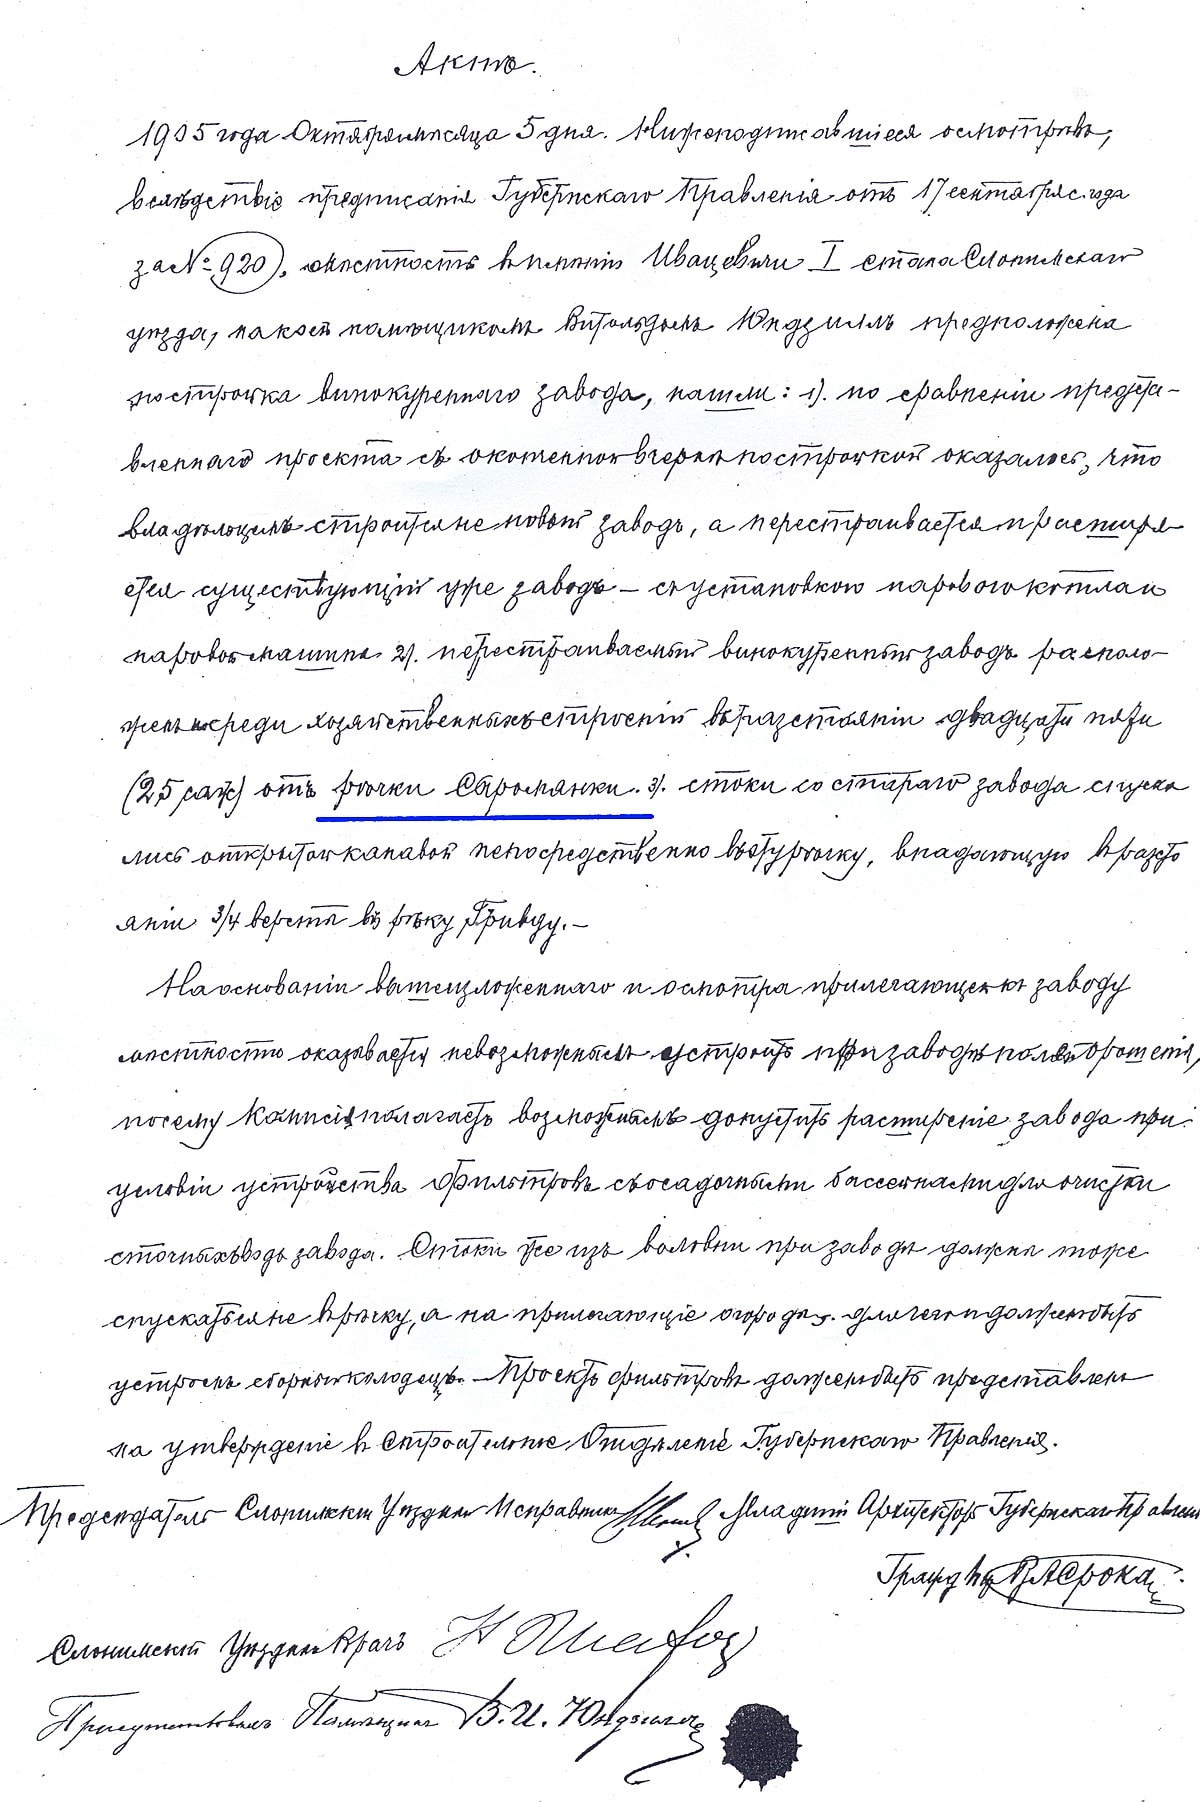 Актъ.
1905 года Октября мѣсяца 5 дня. Нижеподписавшіеся осмотрѣвъ,
вслѣдствіе предписанія Губернскаго Правленія отъ 17 сентября с. года
за № 920), мѣстность въ имѣніи Ивацевичи I стана Слонимскаго
уѣзда, на коей помѣщикомъ Витольдомъ Юндзилъ предположена
постройка винокуреннаго завода, нашли: 1). по сравненіи предста-
вленнаго проекта съ оконченной вчернѣ постройкой оказалось, что
владѣльцемъ строится не новый заводъ, а перестраивается и расширя-
ется существующій уже заводъ – съ установкою парового котла и
паровой машины 2). перестраиваемый винокуренный заводъ располо-
женъ среди хозяйственныхъ строеній въ разстояніи двадцати пяти
(25 саж) отъ рѣчки Сѣромянки. 3). стоки со стараго завода спуска
лись открытой канавой непосредственно въ эту рѣчку, впадающую въ разсто
яніи 3/4 версты въ рѣку Гривду. –
На основаніи вышеизложеннаго и осмотра прилегающей къ заводу
мѣстности оказывается невозможнымъ устроить при заводѣ поля орошенія,
посему Комисія полагаетъ возможнымъ допустить расширеніе завода при
условіи устройства фильтровъ съ осадочными бассейнами для очистки
сточныхъ водъ завода. Стоки же изъ воловни при заводѣ должны тоже
спускаться не въ рѣчку, а на прилегающіе огороды, для чего и долженъ быть
устроенъ сборный колодецъ. – Проектъ фильтровъ долженъ быть представленъ
на утвержденіе въ Строительное Отдѣленіе Губернскаго Правленія.
Предсѣдатель Слонимскій Уѣздный Исправникъ Младшій Архитекторъ Губернскаго Правленія
Слонимскій Уѣздный Врачъ
Присутствовалъ Помѣщикъ В. И. Юндзиллъ